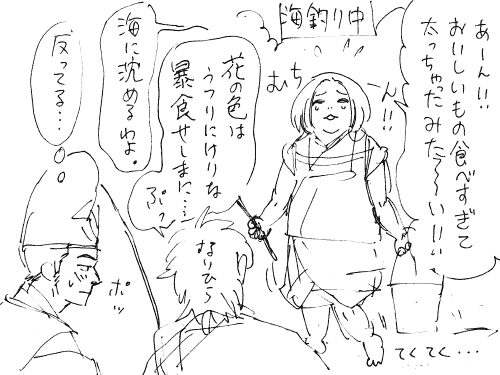 海釣り中
あーん!!
おいしいもの食べすぎて
太っちゃったみた〜〜い!!
むち
ん!!
花の色は
うつりにけりな
暴食せしまに……
ぷっ
海に沈めるわよ。
反ってる…
なりひら
ポッ
てくてく・・・